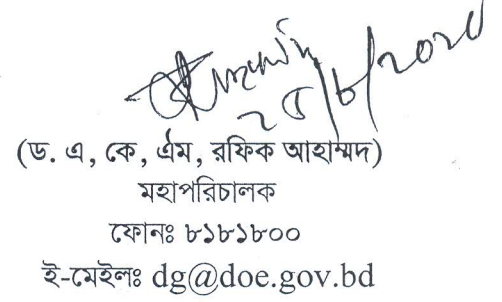 (ড. এ, কে, এম, রফিক আহাম্মদ)
মহাপরিচালক
ফোনঃ ৮১৮১৮০০
ই-মেইলঃ dg@doe.gov.bd